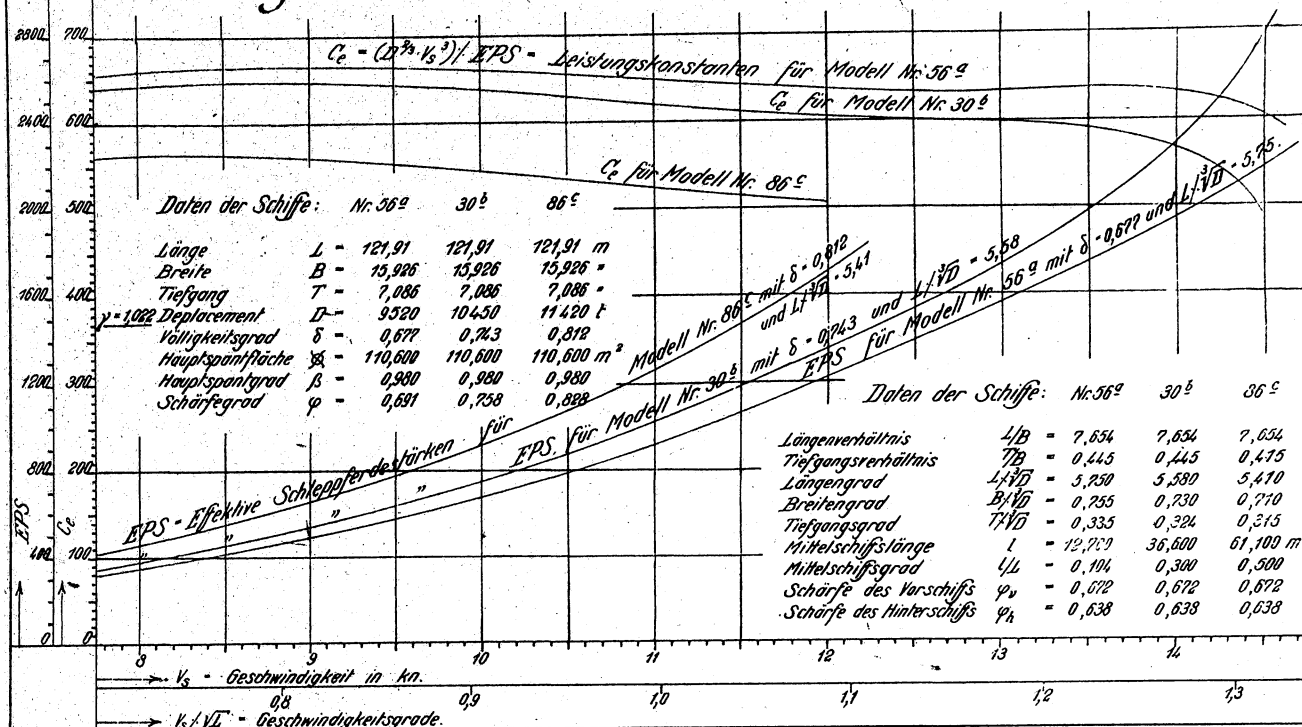 C_e = (D^⅔·V_s³)/EPS = Leistungskonstanten für Modell Nr. 56ª
C_e für Modell Nr. 30ᵇ
C_e für Modell Nr. 86ᶜ
2800 700
2400 600
2000 500
1600 400
1200 300
800 200
400 100
0 0
EPS
C_e
Daten der Schiffe: Nr. 56ª 30ᵇ 86ᶜ
Länge L = 121,91 121,91 121,91 m
Breite B = 15,926 15,926 15,926 "
Tiefgang T = 7,086 7,086 7,086 "
γ = 1,022 Deplacement D = 9520 10450 11420 t
Völligkeitsgrad δ = 0,677 0,743 0,812
Hauptspantfläche = 110,600 110,600 110,600 m²
Hauptspantgrad β = 0,980 0,980 0,980
Schärfegrad φ = 0,691 0,758 0,828
EPS = Effektive Schleppferdestärken für Modell Nr. 86ᶜ mit δ = 0,812
und L/∛D = 5,41
" " " EPS. für Modell Nr. 30ᵇ mit δ = 0,743 und L/∛D = 5,58
EPS für Modell Nr. 56ª mit δ = 0,677 und L/∛D = 5,75.
Daten der Schiffe: Nr. 56ª 30ᵇ 86ᶜ
Längenverhältnis L/B = 7,654 7,654 7,654
Tiefgangsverhältnis T/B = 0,445 0,445 0,445
Längengrad L/∛D = 5,750 5,580 5,410
Breitengrad B/∛D = 0,755 0,730 0,710
Tiefgangsgrad T/∛D = 0,335 0,324 0,315
Mittelschiffslänge l = 36,600 61,100 m
Mittelschiffsgrad l/L = 0,104 0,300 0,500
Schärfe des Vorschiffs φ_v = 0,672 0,672 0,672
Schärfe des Hinterschiffs φ_h = 0,638 0,638 0,638
8 9 10 11 12 13 14
→ V_s = Geschwindigkeit in kn.
0,8 0,9 1,0 1,1 1,2 1,3
→ V_s/√L = Geschwindigkeitsgrade.